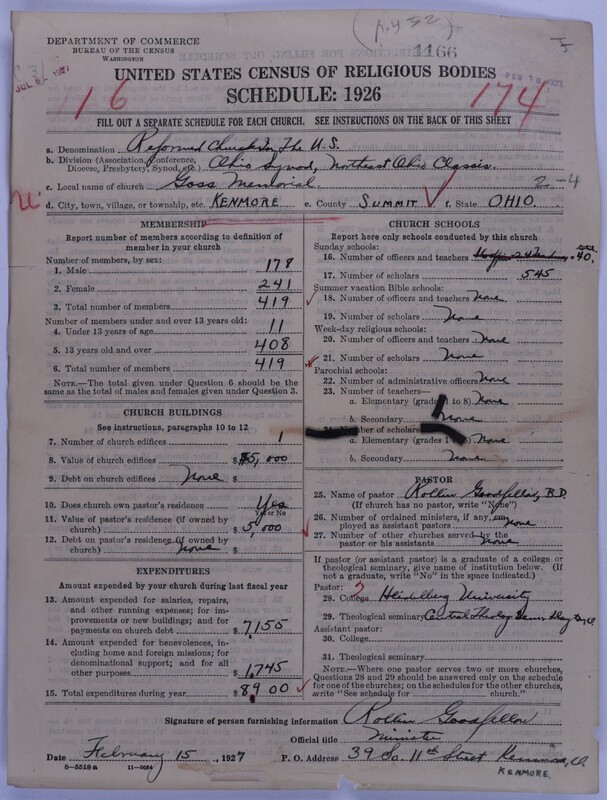 (p. 432)
DEPARTMENT OF COMMERCE
BUREAU OF THE CENSUS
WASHINGTON
1166
116
174
UNITED STATES CENSUS OF RELIGIOUS BODIES
SCHEDULE: 1926
FILL OUT A SEPARATE SCHEDULE FOR EACH CHURCH. SEE INSTRUCTIONS ON THE BACK OF THIS SHEET
a. Denomination Reformed Church In The U.S.
b. Division (Association, Conference, Diocese, Presbytery, Synod, etc.) Ohio Synod, Northeast Ohio Classis.
c. Local name of church Goss Memorial 2-4
d. City, town, village, or township, etc. KENMORE e. County SUMMIT f. State OHIO.
MEMBERSHIP
Report number of members according to definition of member in your church
Number of members, by sex:
1. Male 178
2. Female 241
3. Total number of members 419
Number of members under and over 13 years old:
4. Under 13 years of age 11
5. 13 years old and over 408
6. Total number of members 419
NOTE.—The total given under Question 6 should be
the same as the total of males and females given under Question 3.
CHURCH BUILDINGS
See instructions, paragraphs 10 to 12
7. Number of church edifices 1
8. Value of church edifices $ 85,000
9. Debt on church edifices None $
10. Does church own pastor's residence Yes
Yes or No
11. Value of pastor's residence (if owned by
church) $ 5,000
12. Debt on pastor's residence (if owned by
church) None $
EXPENDITURES
Amount expended by your church during last fiscal year
13. Amount expended for salaries, repairs,
and other running expenses; for im-
provements or new buildings; and for
payments on church debt $ 7,155
14. Amount expended for benevolences,
including home and foreign missions; for
denominational support; and for all
other purposes $ 1,745
15. Total expenditures during year $ 8900
CHURCH SCHOOLS
Report here only schools conducted by this church
Sunday schools:
16. Number of officers and teachers 40.
17. Number of scholars 545
Summer vacation Bible schools:
18. Number of officers and teachers None
19. Number of scholars None
Week-day religious schools:
20. Number of officers and teachers None
21. Number of scholars None
Parochial schools:
22. Number of administrative officers None
23. Number of teachers—
a. Elementary (grades 1 to 8) None
b. Secondary None
24. Number of scholars—
a. Elementary (grades 1 to 8) None
b. Secondary None
PASTOR
25. Name of pastor Rollin Goodfellow, B.D.
(If church has no pastor, write "None")
26. Number of ordained ministers, if any, em-
ployed as assistant pastors None
27. Number of other churches served by the
pastor or his assistants None
If pastor (or assistant pastor) is a graduate of a college or
theological seminary, give name of institution below. (If
not a graduate, write "No" in the space indicated.)
Pastor:
28. College Heidelberg University
29. Theological seminary Central Theolog. Sem. Dayton, O.
Assistant pastor:
30. College
31. Theological seminary
NOTE.—Where one pastor serves two or more churches,
Questions 28 and 29 should be answered only on the schedule
for one of the churches; on the schedules for the other churches,
write "See schedule for church."
Signature of person furnishing information Rollin Goodfellow
Official title Minister
Date February 15, 1927 P. O. Address 39 So. 11th Street Kenmore, O.
KENMORE